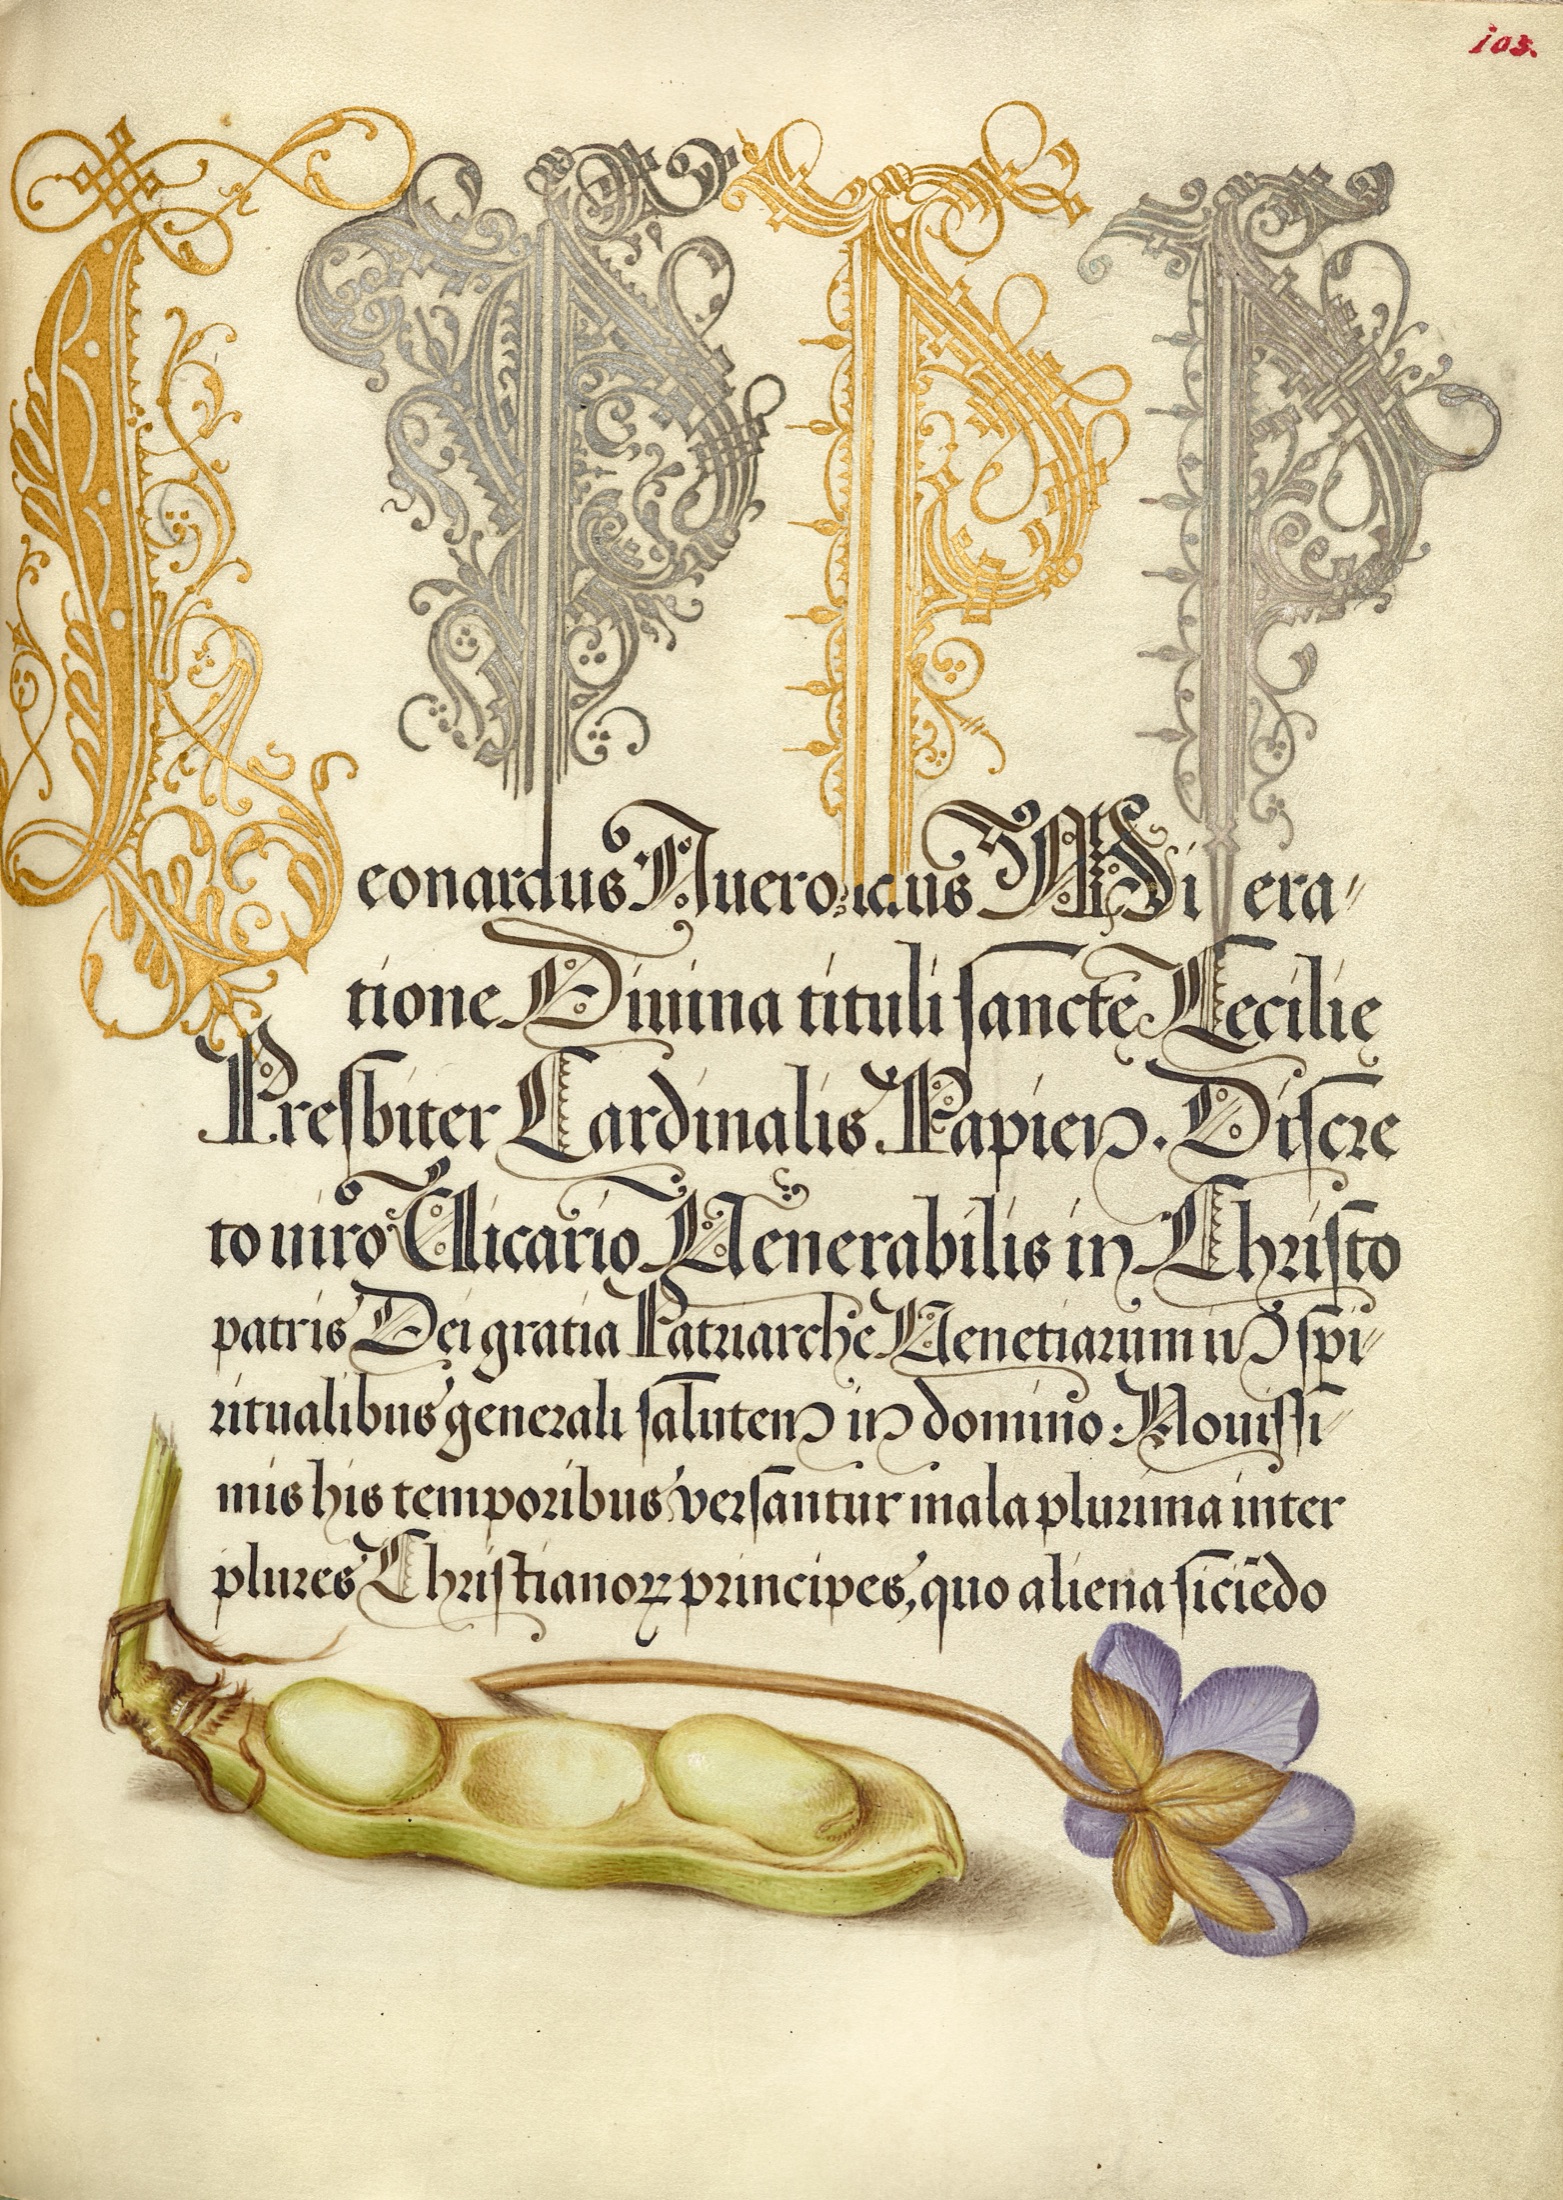 103.
L P P P
eonardus Auero⁊cus Misera⸗
tione Diuina tituli sanctę Cecilię
Presbiter Cardinalis Papien. Discre
to uiro Vicario Venerabilis in Christo
patris Dei gratia Patriarche Venetiarum in spi⸗
ritualibus generali salutem in domino. Nouissi⸗
mis his temporibus versantur mala plurima inter
plures Christianoꝝ principes, quo aliena siciēdo